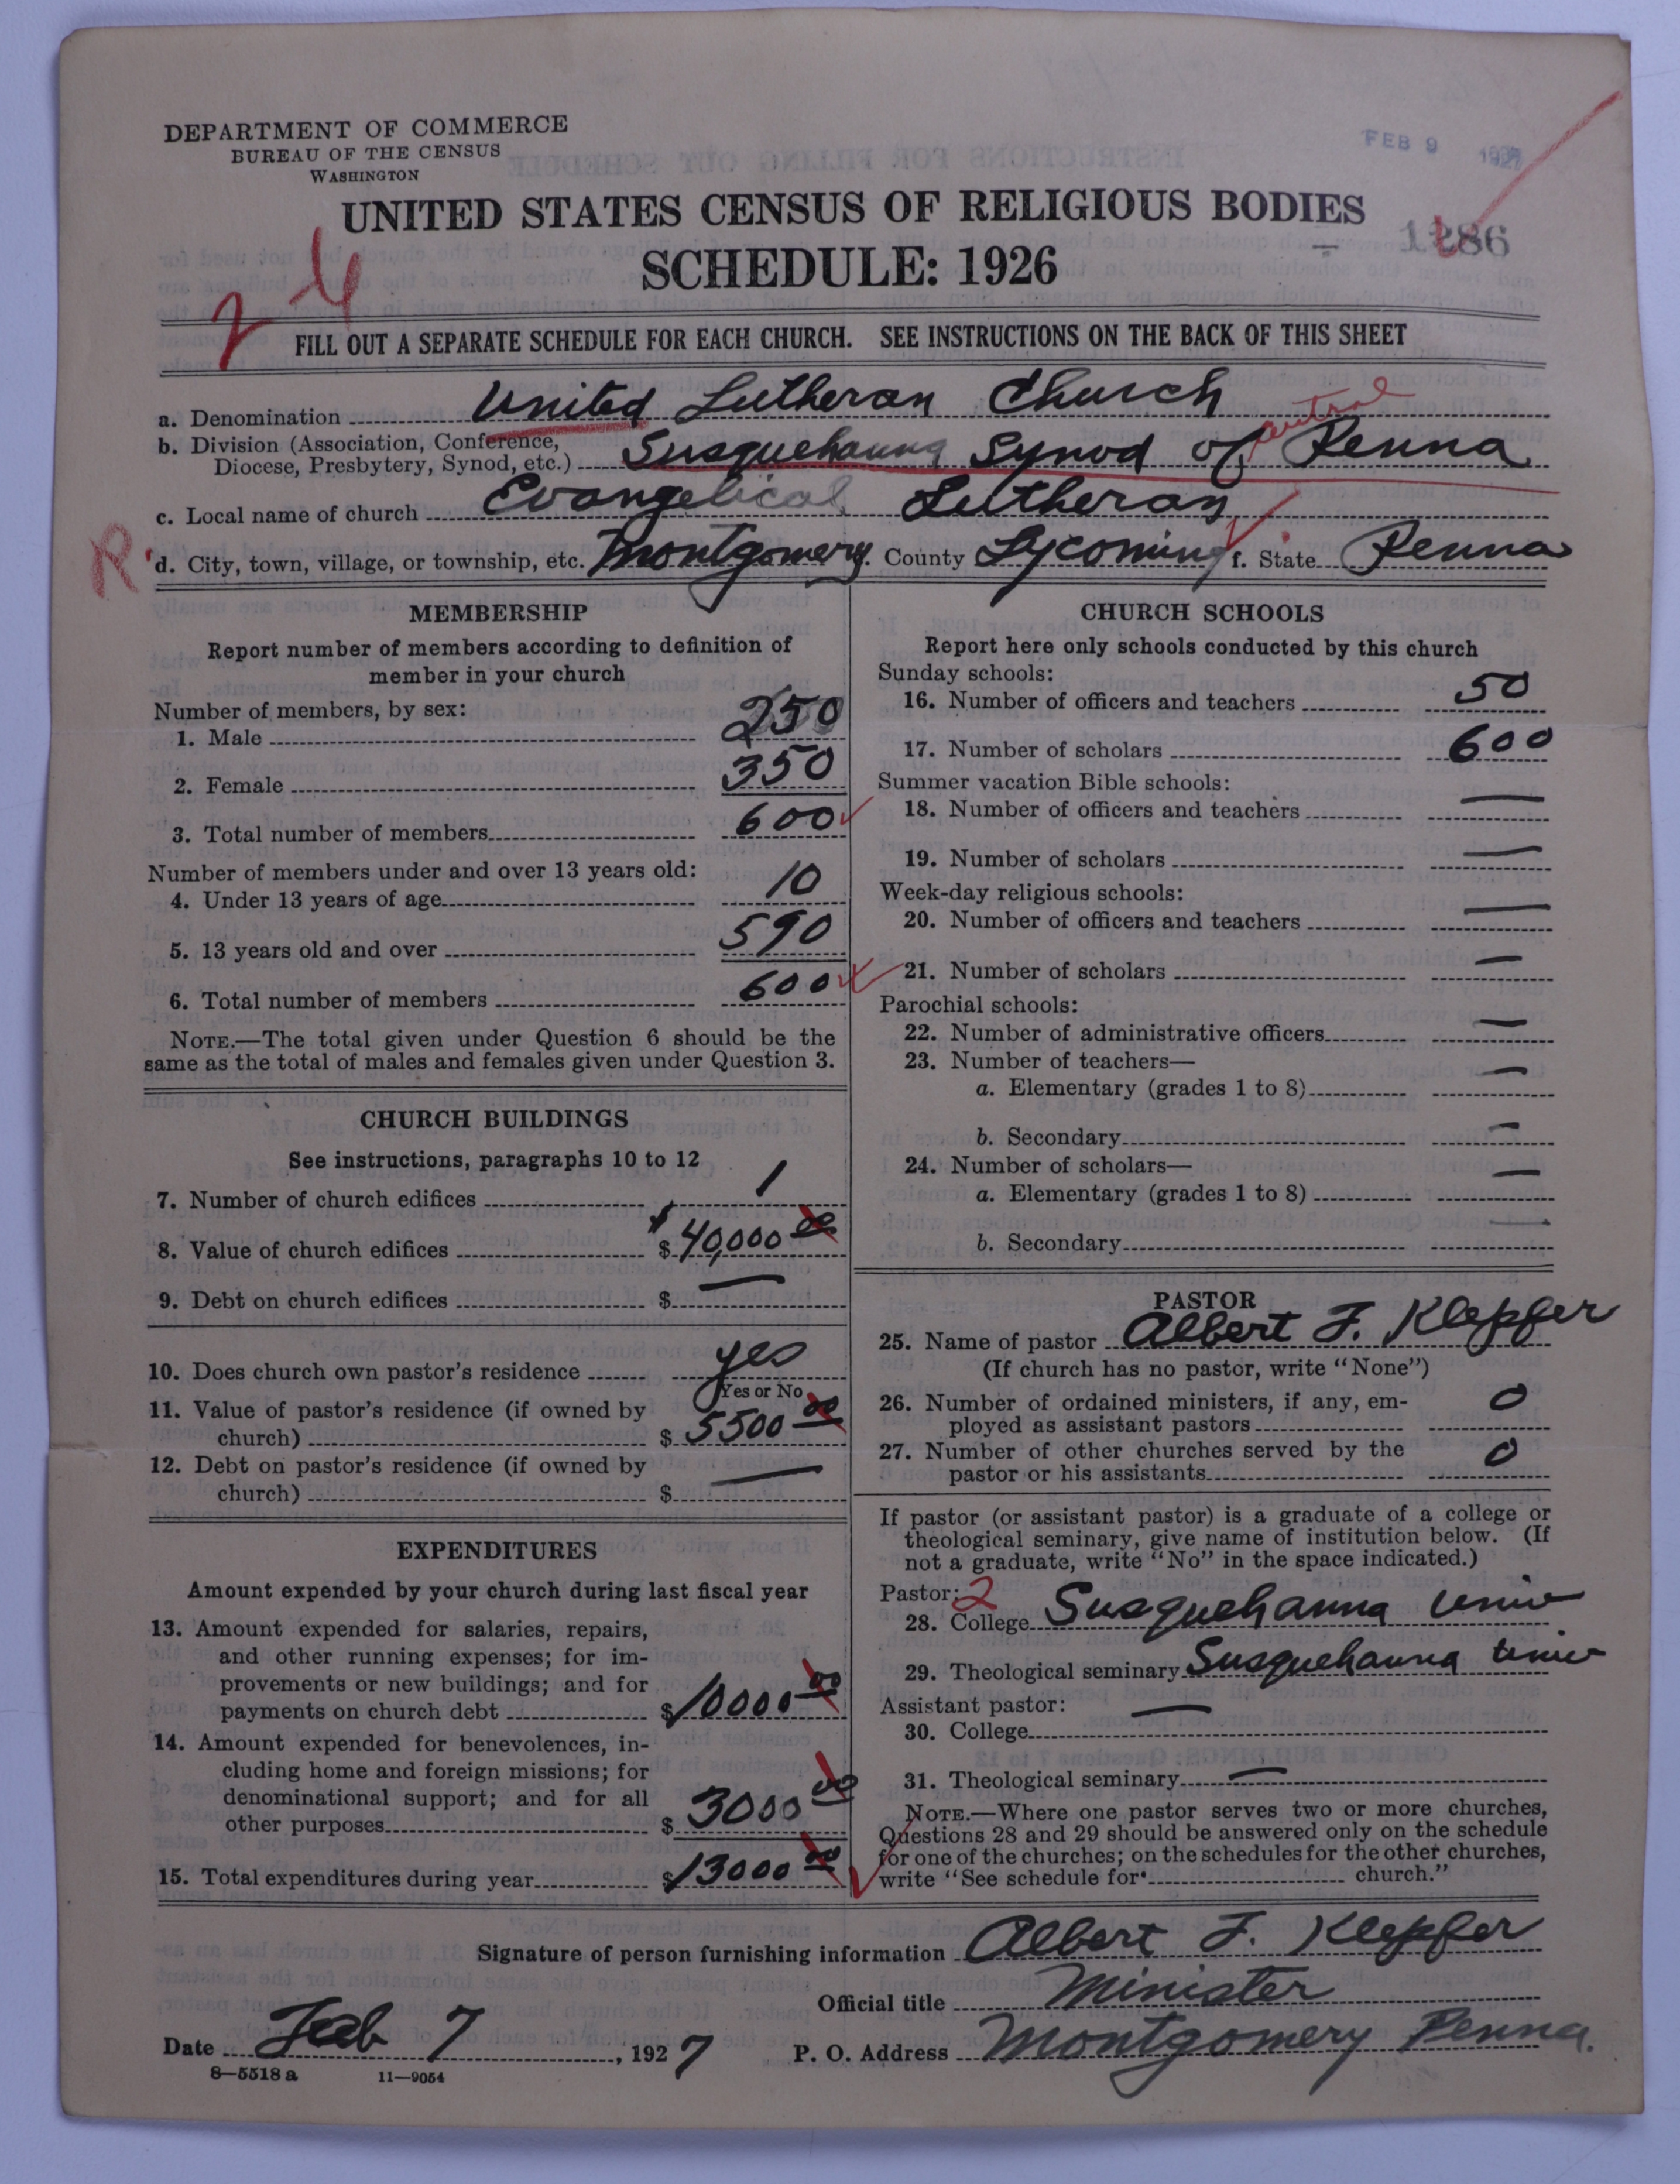 DEPARTMENT OF COMMERCE
BUREAU OF THE CENSUS
WASHINGTON
FEB 9 1927
UNITED STATES CENSUS OF RELIGIOUS BODIES
SCHEDULE: 1926
2 4
FILL OUT A SEPARATE SCHEDULE FOR EACH CHURCH. SEE INSTRUCTIONS ON THE BACK OF THIS SHEET
a. Denomination United Lutheran Church
b. Division (Association, Conference, Diocese, Presbytery, Synod, etc.) Susquehanna Synod of Central Penna
c. Local name of church Evangelical Lutheran
R d. City, town, village, or township, etc. Montgomery. County Lycoming f. State Penna
MEMBERSHIP
Report number of members according to definition of
member in your church
Number of members, by sex:
1. Male 250
2. Female 350
3. Total number of members 600
Number of members under and over 13 years old:
4. Under 13 years of age 10
5. 13 years old and over 590
6. Total number of members 600
NOTE.—The total given under Question 6 should be the
same as the total of males and females given under Question 3.
CHURCH BUILDINGS
See instructions, paragraphs 10 to 12
7. Number of church edifices 1
8. Value of church edifices $ 40,000 00
9. Debt on church edifices $ —
10. Does church own pastor's residence yes
Yes or No
11. Value of pastor's residence (if owned by
church) $ 5500 00
12. Debt on pastor's residence (if owned by
church) $ —
EXPENDITURES
Amount expended by your church during last fiscal year
13. Amount expended for salaries, repairs,
and other running expenses; for im-
provements or new buildings; and for
payments on church debt $ 10000 00
14. Amount expended for benevolences, in-
cluding home and foreign missions; for
denominational support; and for all
other purposes $ 3000 00
15. Total expenditures during year $ 13000 00
CHURCH SCHOOLS
Report here only schools conducted by this church
Sunday schools:
16. Number of officers and teachers 50
17. Number of scholars 600
Summer vacation Bible schools:
18. Number of officers and teachers —
19. Number of scholars —
Week-day religious schools:
20. Number of officers and teachers —
21. Number of scholars —
Parochial schools:
22. Number of administrative officers —
23. Number of teachers—
a. Elementary (grades 1 to 8) —
b. Secondary —
24. Number of scholars—
a. Elementary (grades 1 to 8) —
b. Secondary —
PASTOR
25. Name of pastor Albert F. Klepfer
(If church has no pastor, write "None")
26. Number of ordained ministers, if any, em-
ployed as assistant pastors 0
27. Number of other churches served by the
pastor or his assistants 0
If pastor (or assistant pastor) is a graduate of a college or
theological seminary, give name of institution below. (If
not a graduate, write "No" in the space indicated.)
Pastor: 2
28. College Susquehanna Univ
29. Theological seminary Susquehanna Univ
Assistant pastor:
30. College —
31. Theological seminary —
NOTE.—Where one pastor serves two or more churches,
Questions 28 and 29 should be answered only on the schedule
for one of the churches; on the schedules for the other churches,
write "See schedule for church."
Signature of person furnishing information Albert F. Klepfer
Official title Minister
Date Feb 7, 1927 P. O. Address Montgomery Penna.
8—5518 a 11—9054